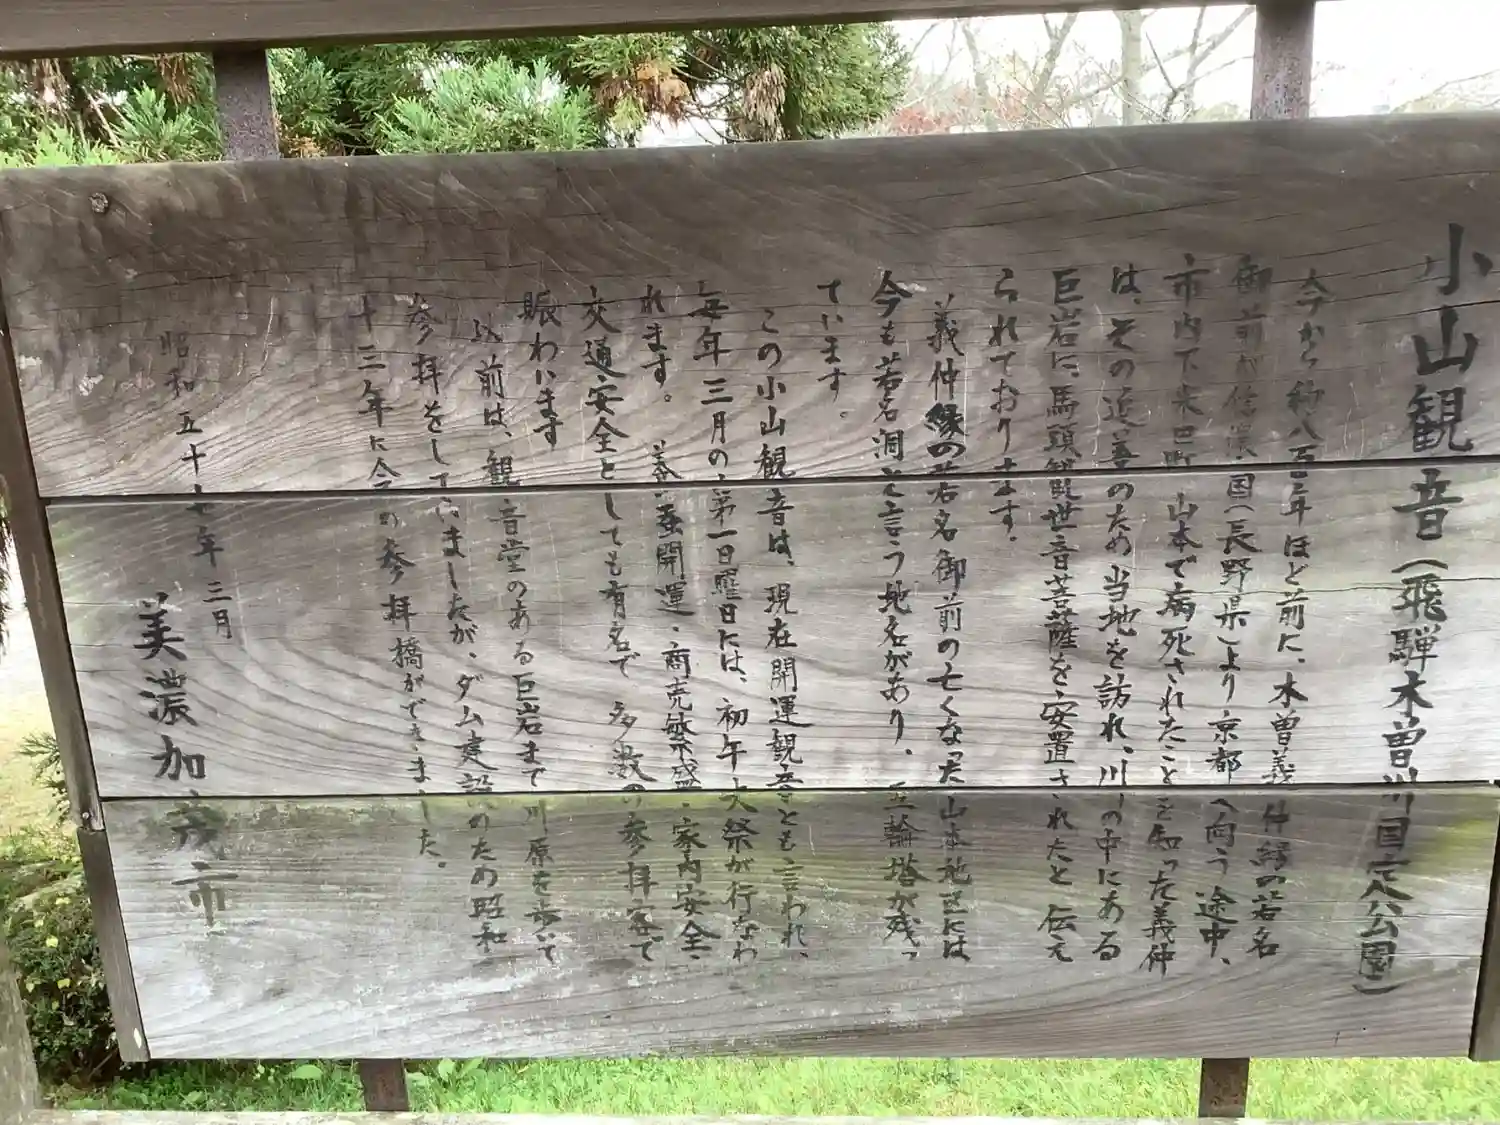 小山観音（飛騨木曽川国定公園）
今から約八百年ほど前に、木曽義仲縁の若名
御前が信濃国（長野県）より京都へ向う途中、
市内下米田町山本で病死されたことを知った義仲
は、その追善のため当地を訪れ、川の中にある
巨岩に、馬頭観世音菩薩を安置されたと伝え
られております。
義仲縁の若名御前の亡くなった山本地区には
今も若名洞と言う地名があり、五輪塔が残っ
ています。
この小山観音は、現在開運観音とも言われ、
毎年三月の第一日曜日には、初午大祭が行なわ
れます。養蚕開運・商売繁盛・家内安全・
交通安全としても有名で多数の参拝客で
賑わいます
以前は、観音堂のある巨岩まで川原を歩いて
参拝をしていましたが、ダム建設のため昭和
十三年に今の参拝橋ができました。
昭和五十七年三月
美濃加茂市